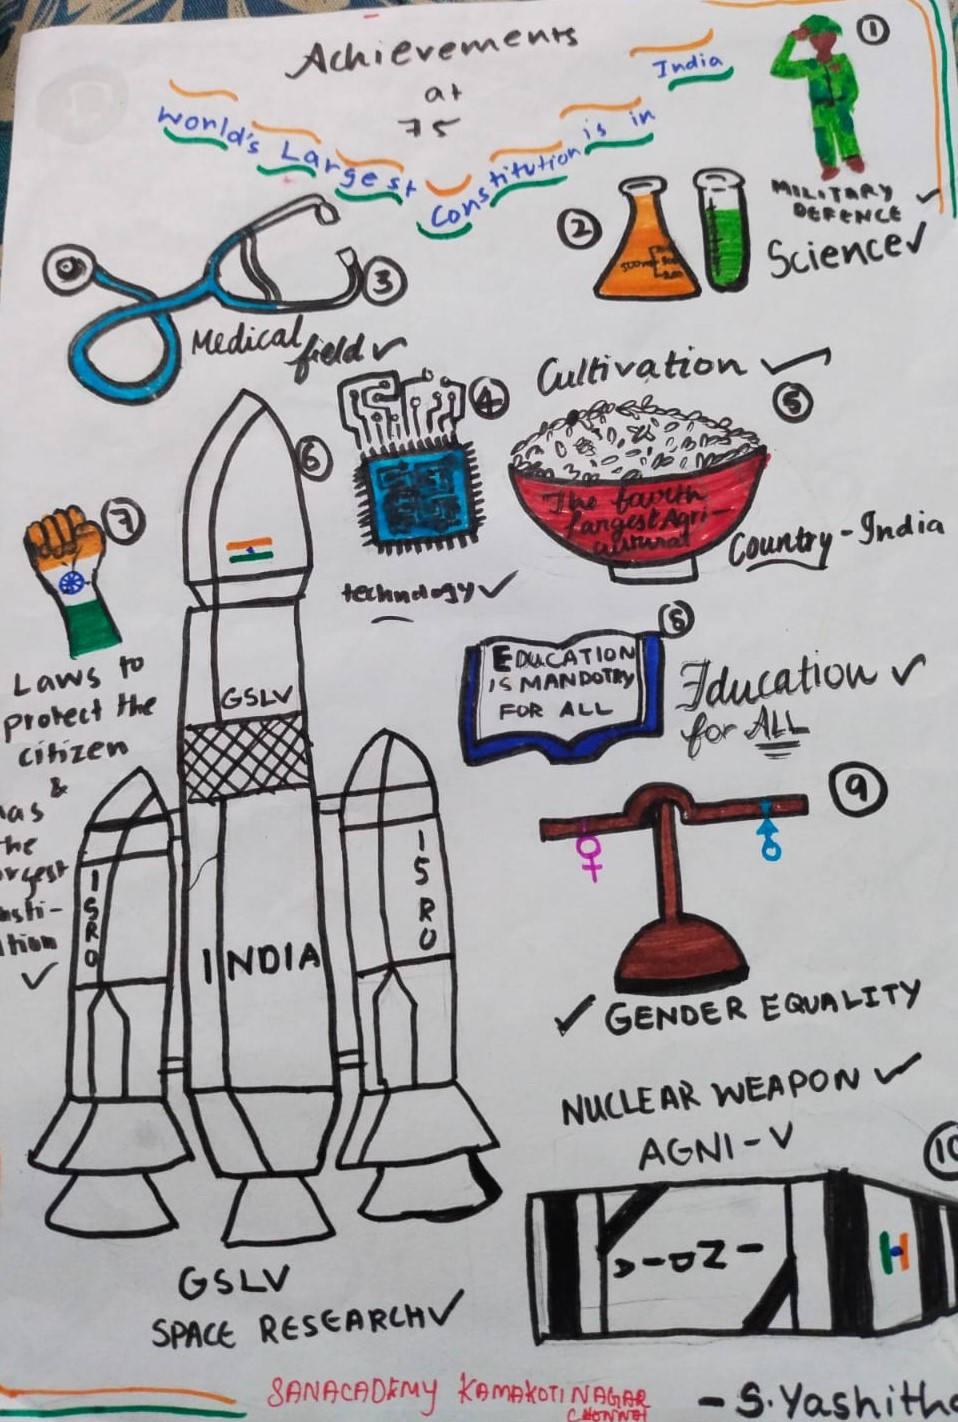 Achievements
at
75
World's Largest Constitution is in India
1
MILITARY
DEFENCE
2
Science
3
Medical
field
4
technology
Cultivation
5
The fourth
largest Agri-
cultural
Country - India
6
GSLV
INDIA
ISRO
ISRO
GSLV
SPACE RESEARCH
7
Laws to
protect the
citizen
&
8
EDUCATION
IS MANDOTRY
FOR ALL
Education
for ALL
9
GENDER EQUALITY
NUCLEAR WEAPON
AGNI-V
10
INDIA
SANACADEMY KAMAKOTINAGAR
CHENNAI
- S.Yashitha